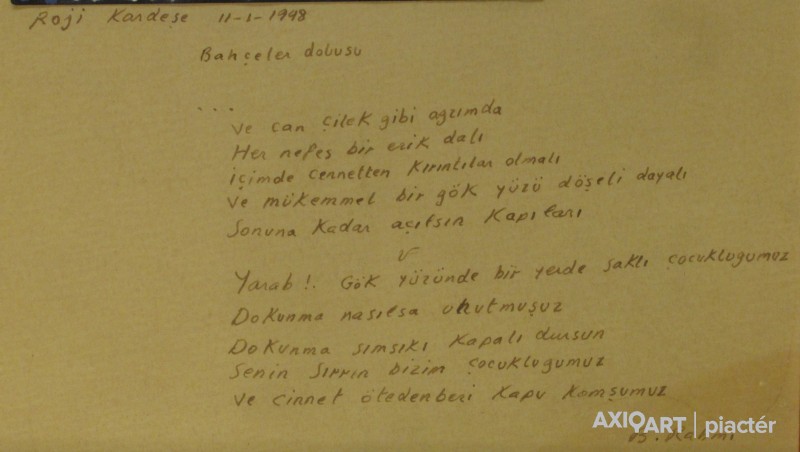 Roji Kardeşe 11-1-1998
Bahçeler dolusu
...
Ve can çilek gibi ağzımda
Her nefes bir erik dalı
içimde cennetten kırıntılar olmalı
Ve mükemmel bir gök yüzü döşeli dayalı
Sonuna kadar açılsın kapıları
Yarab!. Gök yüzünde bir yerde saklı çocukluğumuz
Dokunma nasılsa unutmuşuz
Dokunma sımsıkı kapalı dursun
Senin Sırrın bizim çocukluğumuz
Ve cinnet ötedenberi kapu komşumuz
B. Rahmi
AXIOART | piactér